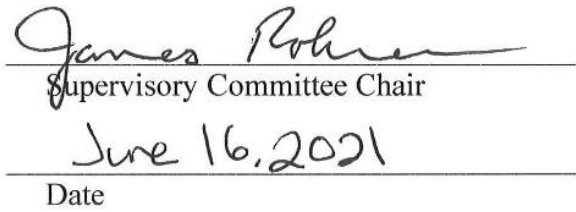 James Rohrer
Supervisory Committee Chair
June 16, 2021
Date